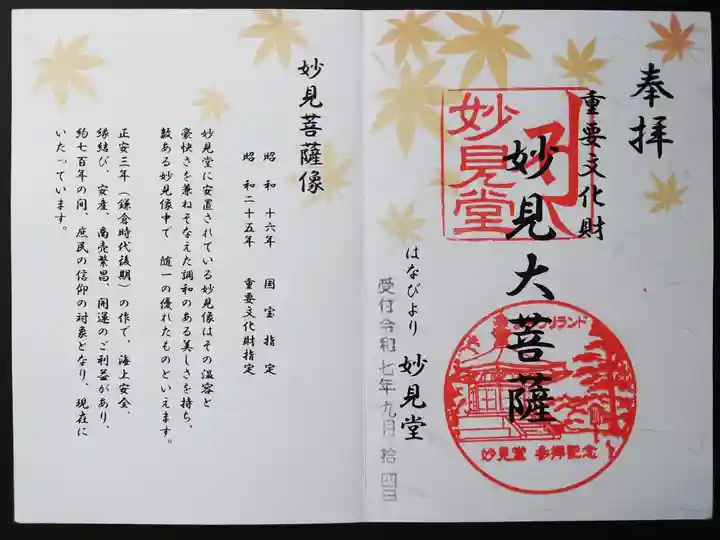 奉拝
重要文化財
妙見大菩薩
妙見堂
はなびより 妙見堂
受付令和七年九月拾四日
よみうりランド
妙見堂 参拝記念
妙見菩薩像
昭和十六年 国宝指定
昭和二十五年 重要文化財指定
妙見堂に安置されている妙見像はその温容と
豪快さを兼ねそなえた調和のある美しさを持ち、
数ある妙見像中で 随一の優れたものといえます。
正安三年(鎌倉時代後期)の作で、海上安全、
縁結び、安産、商売繁昌、開運のご利益があり、
約七百年の間、庶民の信仰の対象となり、現在に
いたっています。